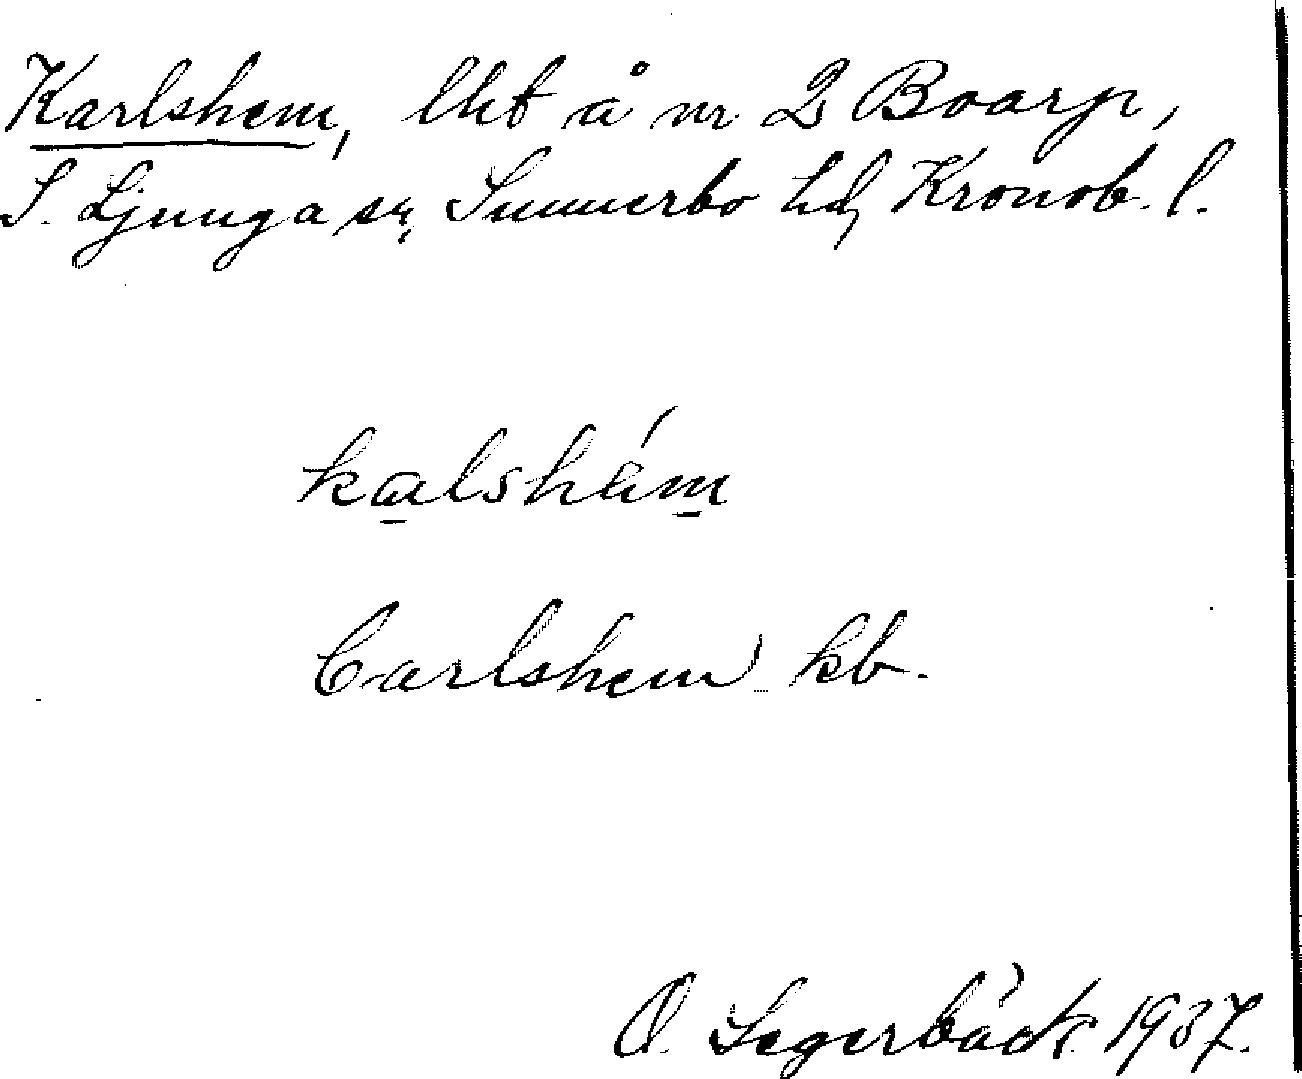 Karlshem, lht å nr 2 Boarp,
S. Ljunga sn, Sunnerbo hd, Kronob. l.
kalshem
Carlshem kb.
O. Segerbäck 1937.